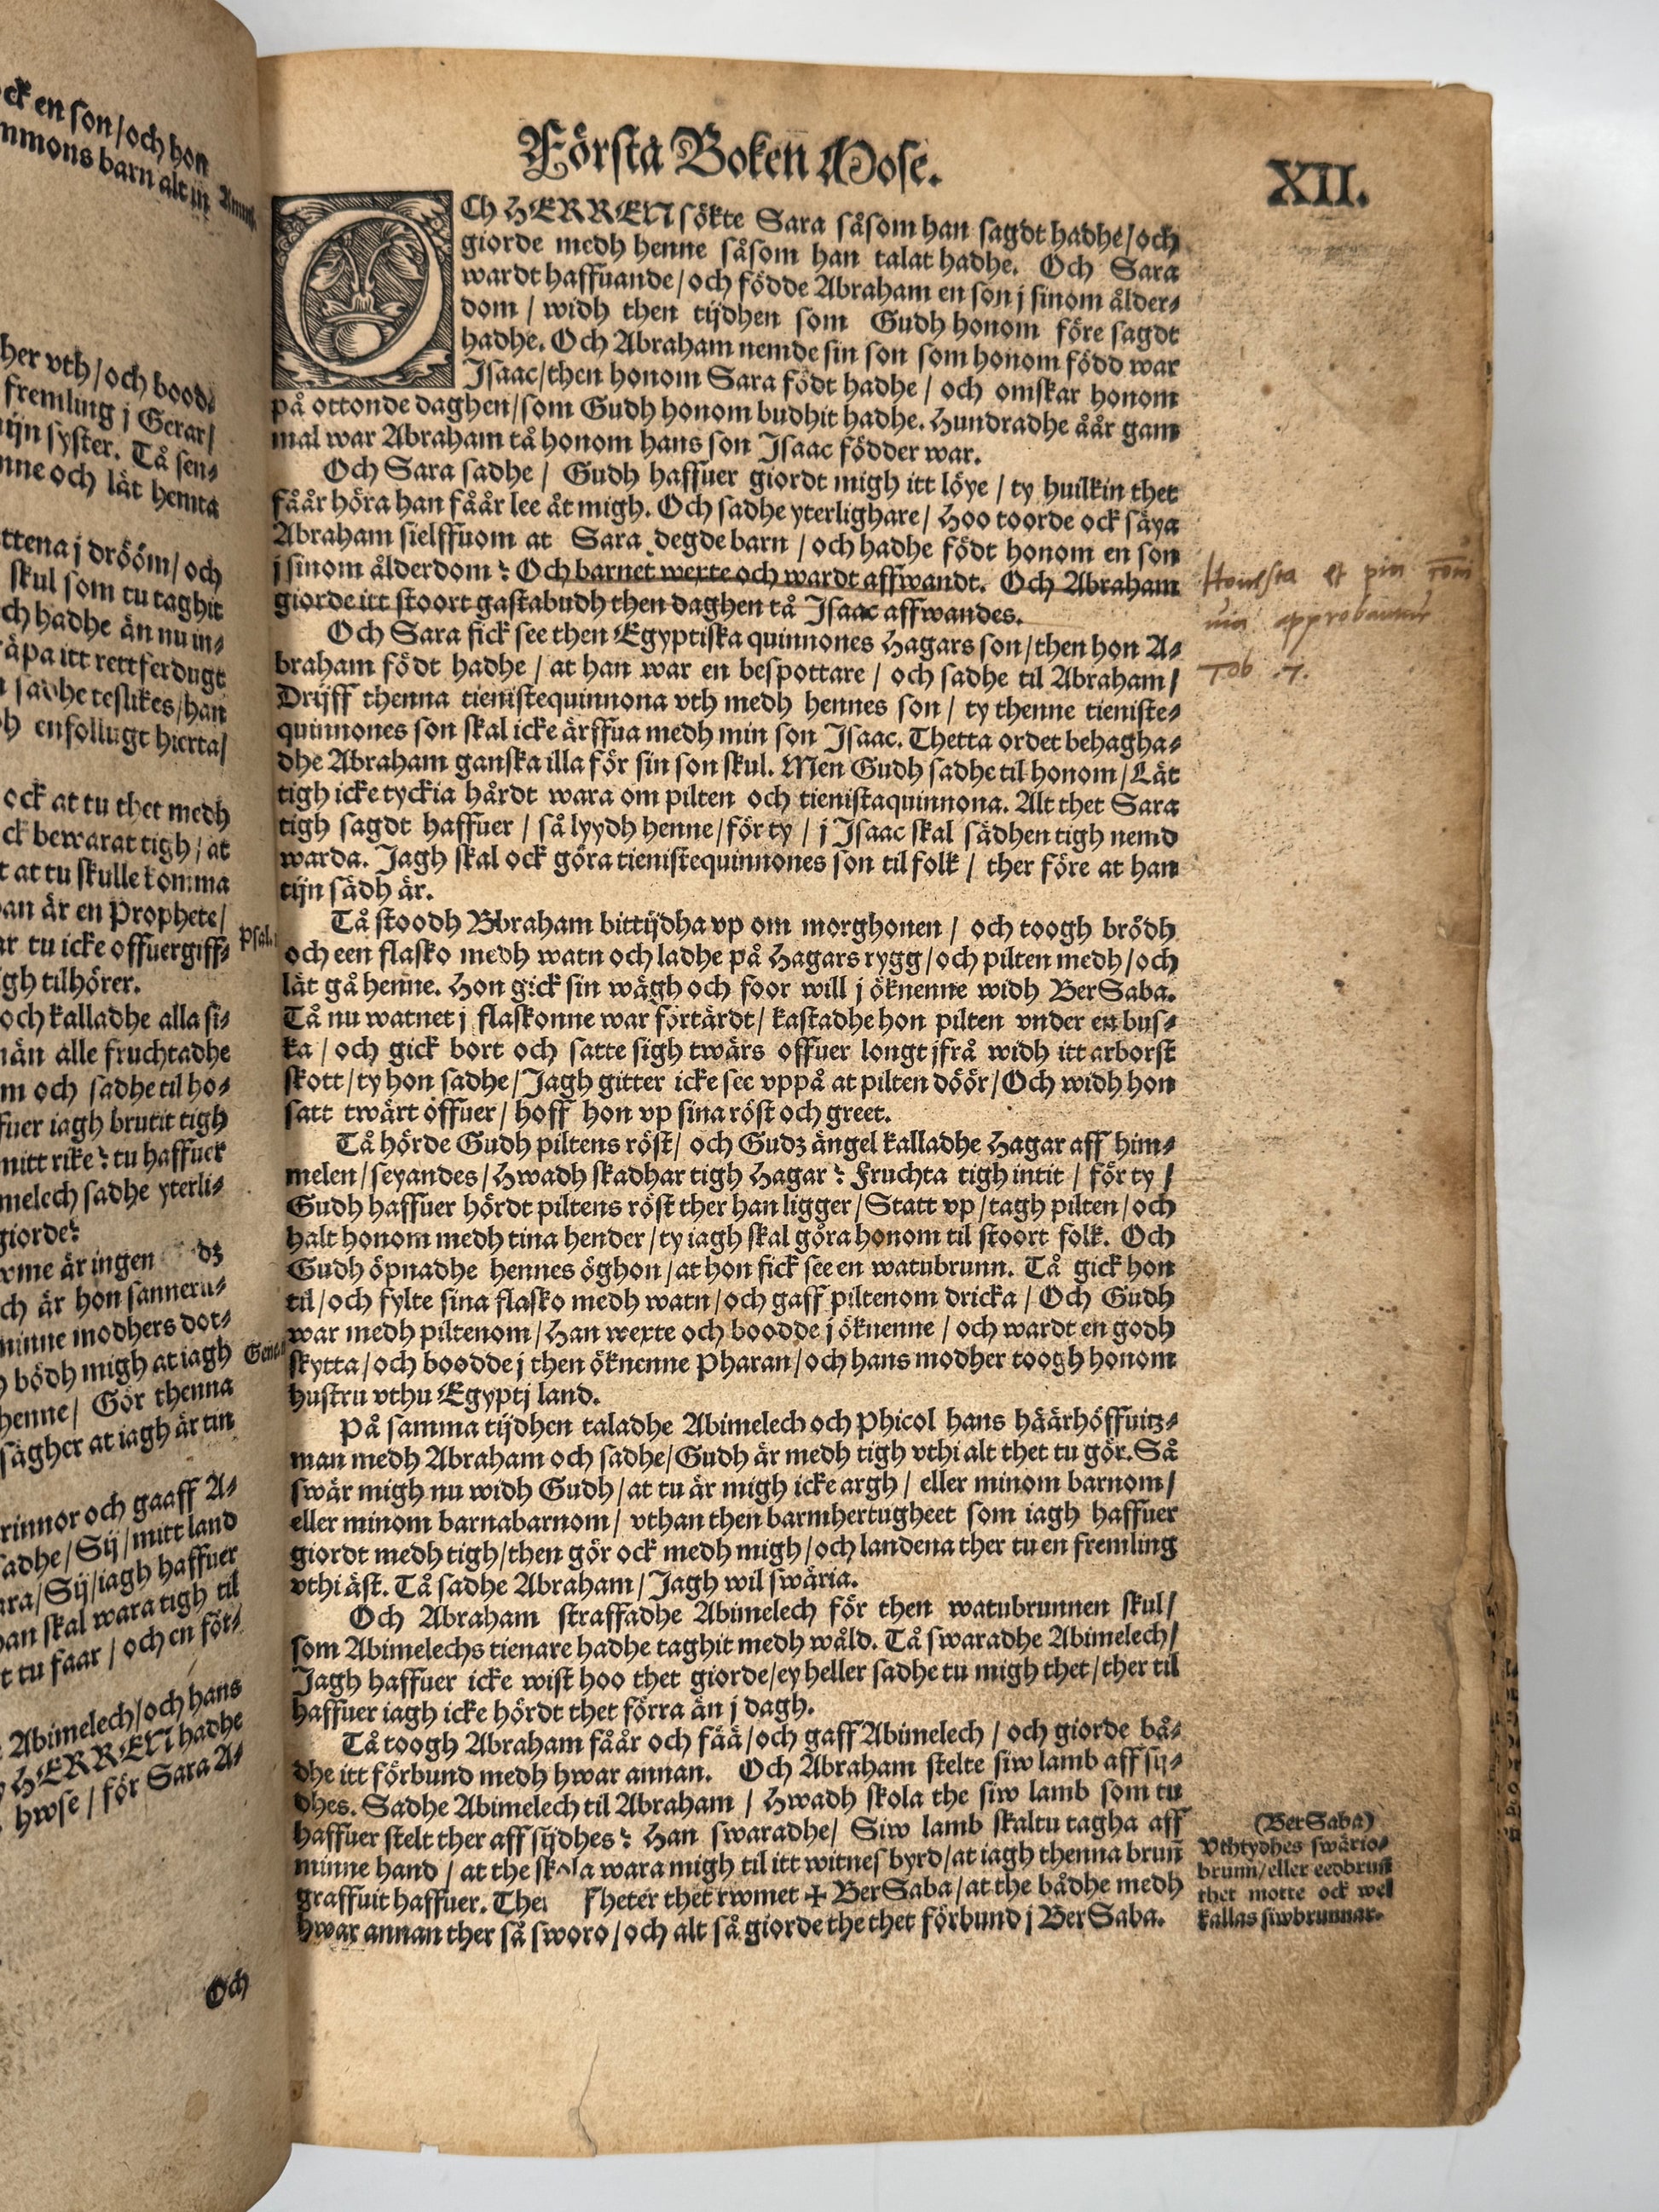 ock en son/och hon
mmons barn alt in
her vth/och bood⸗
fremling j Gerar/
mijn syster. Tå sen⸗
nne och lät hemta
ttena j drööm/och
skul som tu taghit
ch hadhe än nu in⸗
räpa itt rettferdugt
sadhe teslikes/han
enfollugt hierta/
ock at tu thet medh
ck bewarat tigh/at
t at tu skulle komma
an är en Prophete/
ar tu icke offuergiff⸗
gh tilhörer.
och kalladhe alla si⸗
män alle fruchtadhe
m och sadhe til ho⸗
fuer iagh brutit tigh
mitt rike? tu haffuer
melech sadhe yterli⸗
giorde?
är ingen
ch är hon sanneru⸗
minne modhers dot⸗
bödh migh at iagh
henne/ Gör thenna
sägher at iagh är tin
rinnor och gaaff A⸗
sadhe/Sij/mitt land
ara/Sij/iagh haffuer
han skal wara tigh til
t tu faar/och en för⸗
Abimelech/och hans
HERREN hadhe
hwse/för Sara A⸗
Och
Psal.
Första Boken Mose.
XII.
OCh HERREN sökte Sara såsom han sagdt hadhe/och
giorde medh henne såsom han talat hadhe. Och Sara
wardt haffuande/och födde Abraham en son j sinom ålder⸗
dom/widh then tijdhen som Gudh honom före sagdt
hadhe. Och Abraham nemde sin son som honom född war
Isaac/then honom Sara födt hadhe/och omskar honom
på ottonde daghen/som Gudh honom budhit hadhe. Hundradhe åår gam
mal war Abraham tå honom hans son Isaac födder war.
Och Sara sadhe/Gudh haffuer giordt migh itt löye/ty huilkin thet
fåår höra han fåår lee åt migh. Och sadhe yterlighare/Hoo toorde ock säya
Abraham sielffuom at Sara degde barn/och hadhe födt honom en son
j sinom ålderdom? Och barnet wexte och wardt affwandt. Och Abraham
giorde itt stoort gastabudh then daghen tå Isaac affwandes.
Och Sara fick see then Egyptiska quinnones Hagars son/then hon A⸗
braham födt hadhe/at han war en bespottare/och sadhe til Abraham/
Drijff thenna tienistequinnona vth medh hennes son/ty thenne tieniste⸗
quinnones son skal icke ärffua medh min son Isaac. Thetta ordet behagha⸗
dhe Abraham ganska illa för sin son skul. Men Gudh sadhe til honom/Lät
tigh icke tyckia hårdt wara om pilten och tienistaquinnona. Alt thet Sara
tigh sagdt haffuer/så lyydh henne/för ty/j Isaac skal sädhen tigh nemd
warda. Jagh skal ock göra tienistequinnones son til folk/ther före at han
tijn sädh är.
Tå stoodh Bbraham bittijdha vp om morghonen/och toogh brödh
och een flasko medh watn och ladhe på Hagars rygg/och pilten medh/och
lät gå henne. Hon gick sin wägh och foor will j öknenne widh BerSaba.
Tå nu watnet j flaskonne war förtärdt/kastadhe hon pilten vnder en bus⸗
ka/och gick bort och satte sigh twärs offuer longt ifrå widh itt arborst
skott/ty hon sadhe/Jagh gitter icke see vppå at pilten döör/Och widh hon
satt twärt offuer/hoff hon vp sina röst och greet.
Tå hörde Gudh piltens röst/och Gudz ängel kalladhe Hagar aff him⸗
melen/seyandes/Hwadh skadhar tigh Hagar? Fruchta tigh intit/för ty/
Gudh haffuer hördt piltens röst ther han ligger/Statt vp/tagh pilten/och
halt honom medh tina hender/ty iagh skal göra honom til stoort folk. Och
Gudh öpnadhe hennes öghon/at hon fick see en watubrunn. Tå gick hon
til/och fylte sina flasko medh watn/och gaff piltenom dricka/Och Gudh
war medh piltenom/Han wexte och boodde j öknenne/och wardt en godh
skytta/och boodde j then öknenne Pharan/och hans modher toogh honom
hustru vthu Egyptj land.
På samma tijdhen taladhe Abimelech och Phicol hans häärhöffuitz⸗
man medh Abraham och sadhe/Gudh är medh tigh vthi alt thet tu gör. Så
swär migh nu widh Gudh/at tu är migh icke argh/eller minom barnom/
eller minom barnabarnom/vthan then barmhertugheet som iagh haffuer
giordt medh tigh/then gör ock medh migh/och landena ther tu en fremling
vthi äst. Tå sadhe Abraham/Jagh wil swäria.
Och Abraham straffadhe Abimelech för then watubrunnen skul/
som Abimelechs tienare hadhe taghit medh wåld. Tå swaradhe Abimelech/
Jagh haffuer icke wist hoo thet giorde/ey heller sadhe tu migh thet/ther til
haffuer iagh icke hördt thet förra än j dagh.
Tå toogh Abraham fåår och fää/och gaff Abimelech/och giorde bå⸗
dhe itt förbund medh hwar annan. Och Abraham stelte siw lamb aff sij⸗
dhes. Sadhe Abimelech til Abraham/Hwadh skola the siw lamb som tu
haffuer stelt ther aff sijdhes? Han swaradhe/Siw lamb skaltu tagha aff
minne hand/at the skola wara migh til itt witnesbyrd/at iagh thenna brun̄
graffuit haffuer. Ther heter thet rwmet ✠ BerSaba/at the bådhe medh
hwar annan ther så sworo/och alt så giorde the thet förbund j BerSaba.
Honesta et pia
approbantur
Tob. 7.
(BerSaba)
Vthtydhes swärio⸗
brunn/eller eedbrun̄
thet motte ock wel
kallas siwbrunnar.